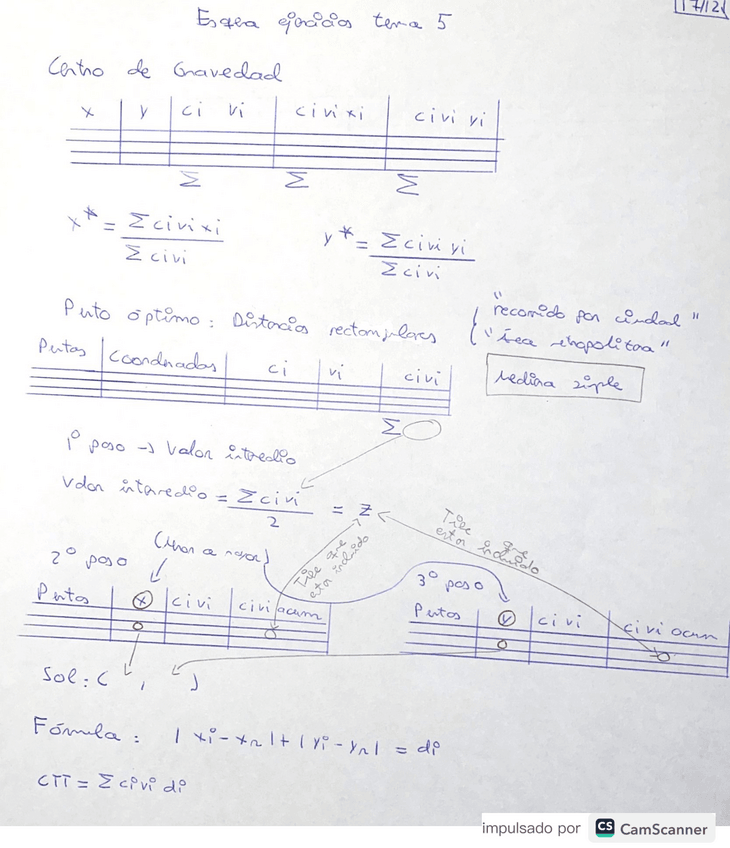 17/12
Esquema ejercicios tema 5
Centro de Gravedad
x | y | ci vi | ci vi xi | ci vi yi
Σ Σ Σ
x* = Σ ci vi xi / Σ ci vi
y* = Σ ci vi yi / Σ ci vi
Punto óptimo: Distancias rectangulares
"recorrido por ciudad"
"área metropolitana"
Mediana simple
Puntos | Coordenadas | ci | vi | ci vi
Σ
1º paso → Valor intermedio
Valor intermedio = Σ ci vi / 2 = Z
2º paso (Menor a mayor)
Tiene que estar incluido
Tiene que estar incluido
3º paso
Puntos | X | ci vi | ci vi acum
Puntos | Y | ci vi | ci vi acum
Sol: ( , )
Fórmula: | xi - xn | + | yi - yn | = di
CTT = Σ ci vi di
impulsado por CS CamScanner